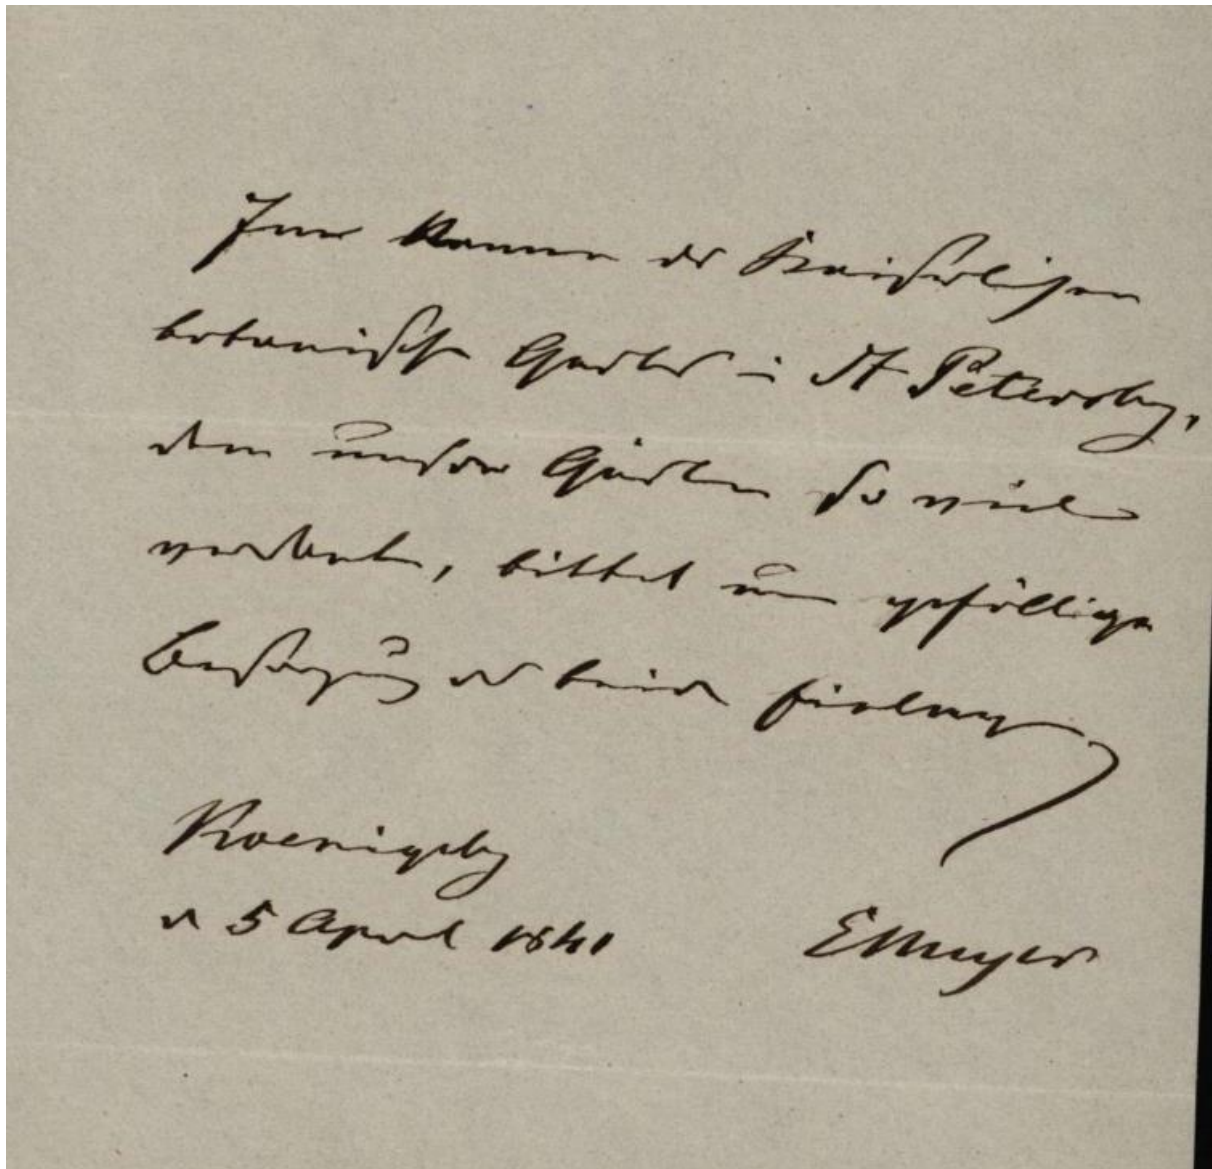 Im Namen der Kaiserlichen
botanischen Gartens in St Petersburg,
dem unser Garten so viel
verdankt, bittet um gefällige
Besorgung der beiden
Koenigsberg
d 5 April 1841 EMeyer